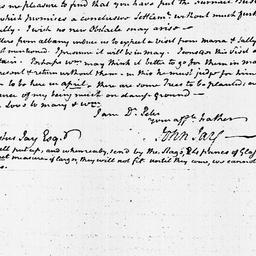 pleasure to find that you have put the Furnace Busi
which promises a conclusive Settlemt. without much furth
I wish no new Obstacles may arise —
from albany induce us to expect a visit from Maria & Sally
I presume it will be in may. I consider this visit
Perhaps Wm. may think it better to go there in
& return without them — in this he must judge for him
to be here in april, there are some Trees to be planted, an
of my being much on damp ground —
Love to Mary & Wm.
I am Dr. Peter
your affte. father
John Jay
Peter Jay Esqr.
well put up, and when ready, send by the Stage, 24 panes of Glass
measures if larger, they will not fit. until they come, we cannot